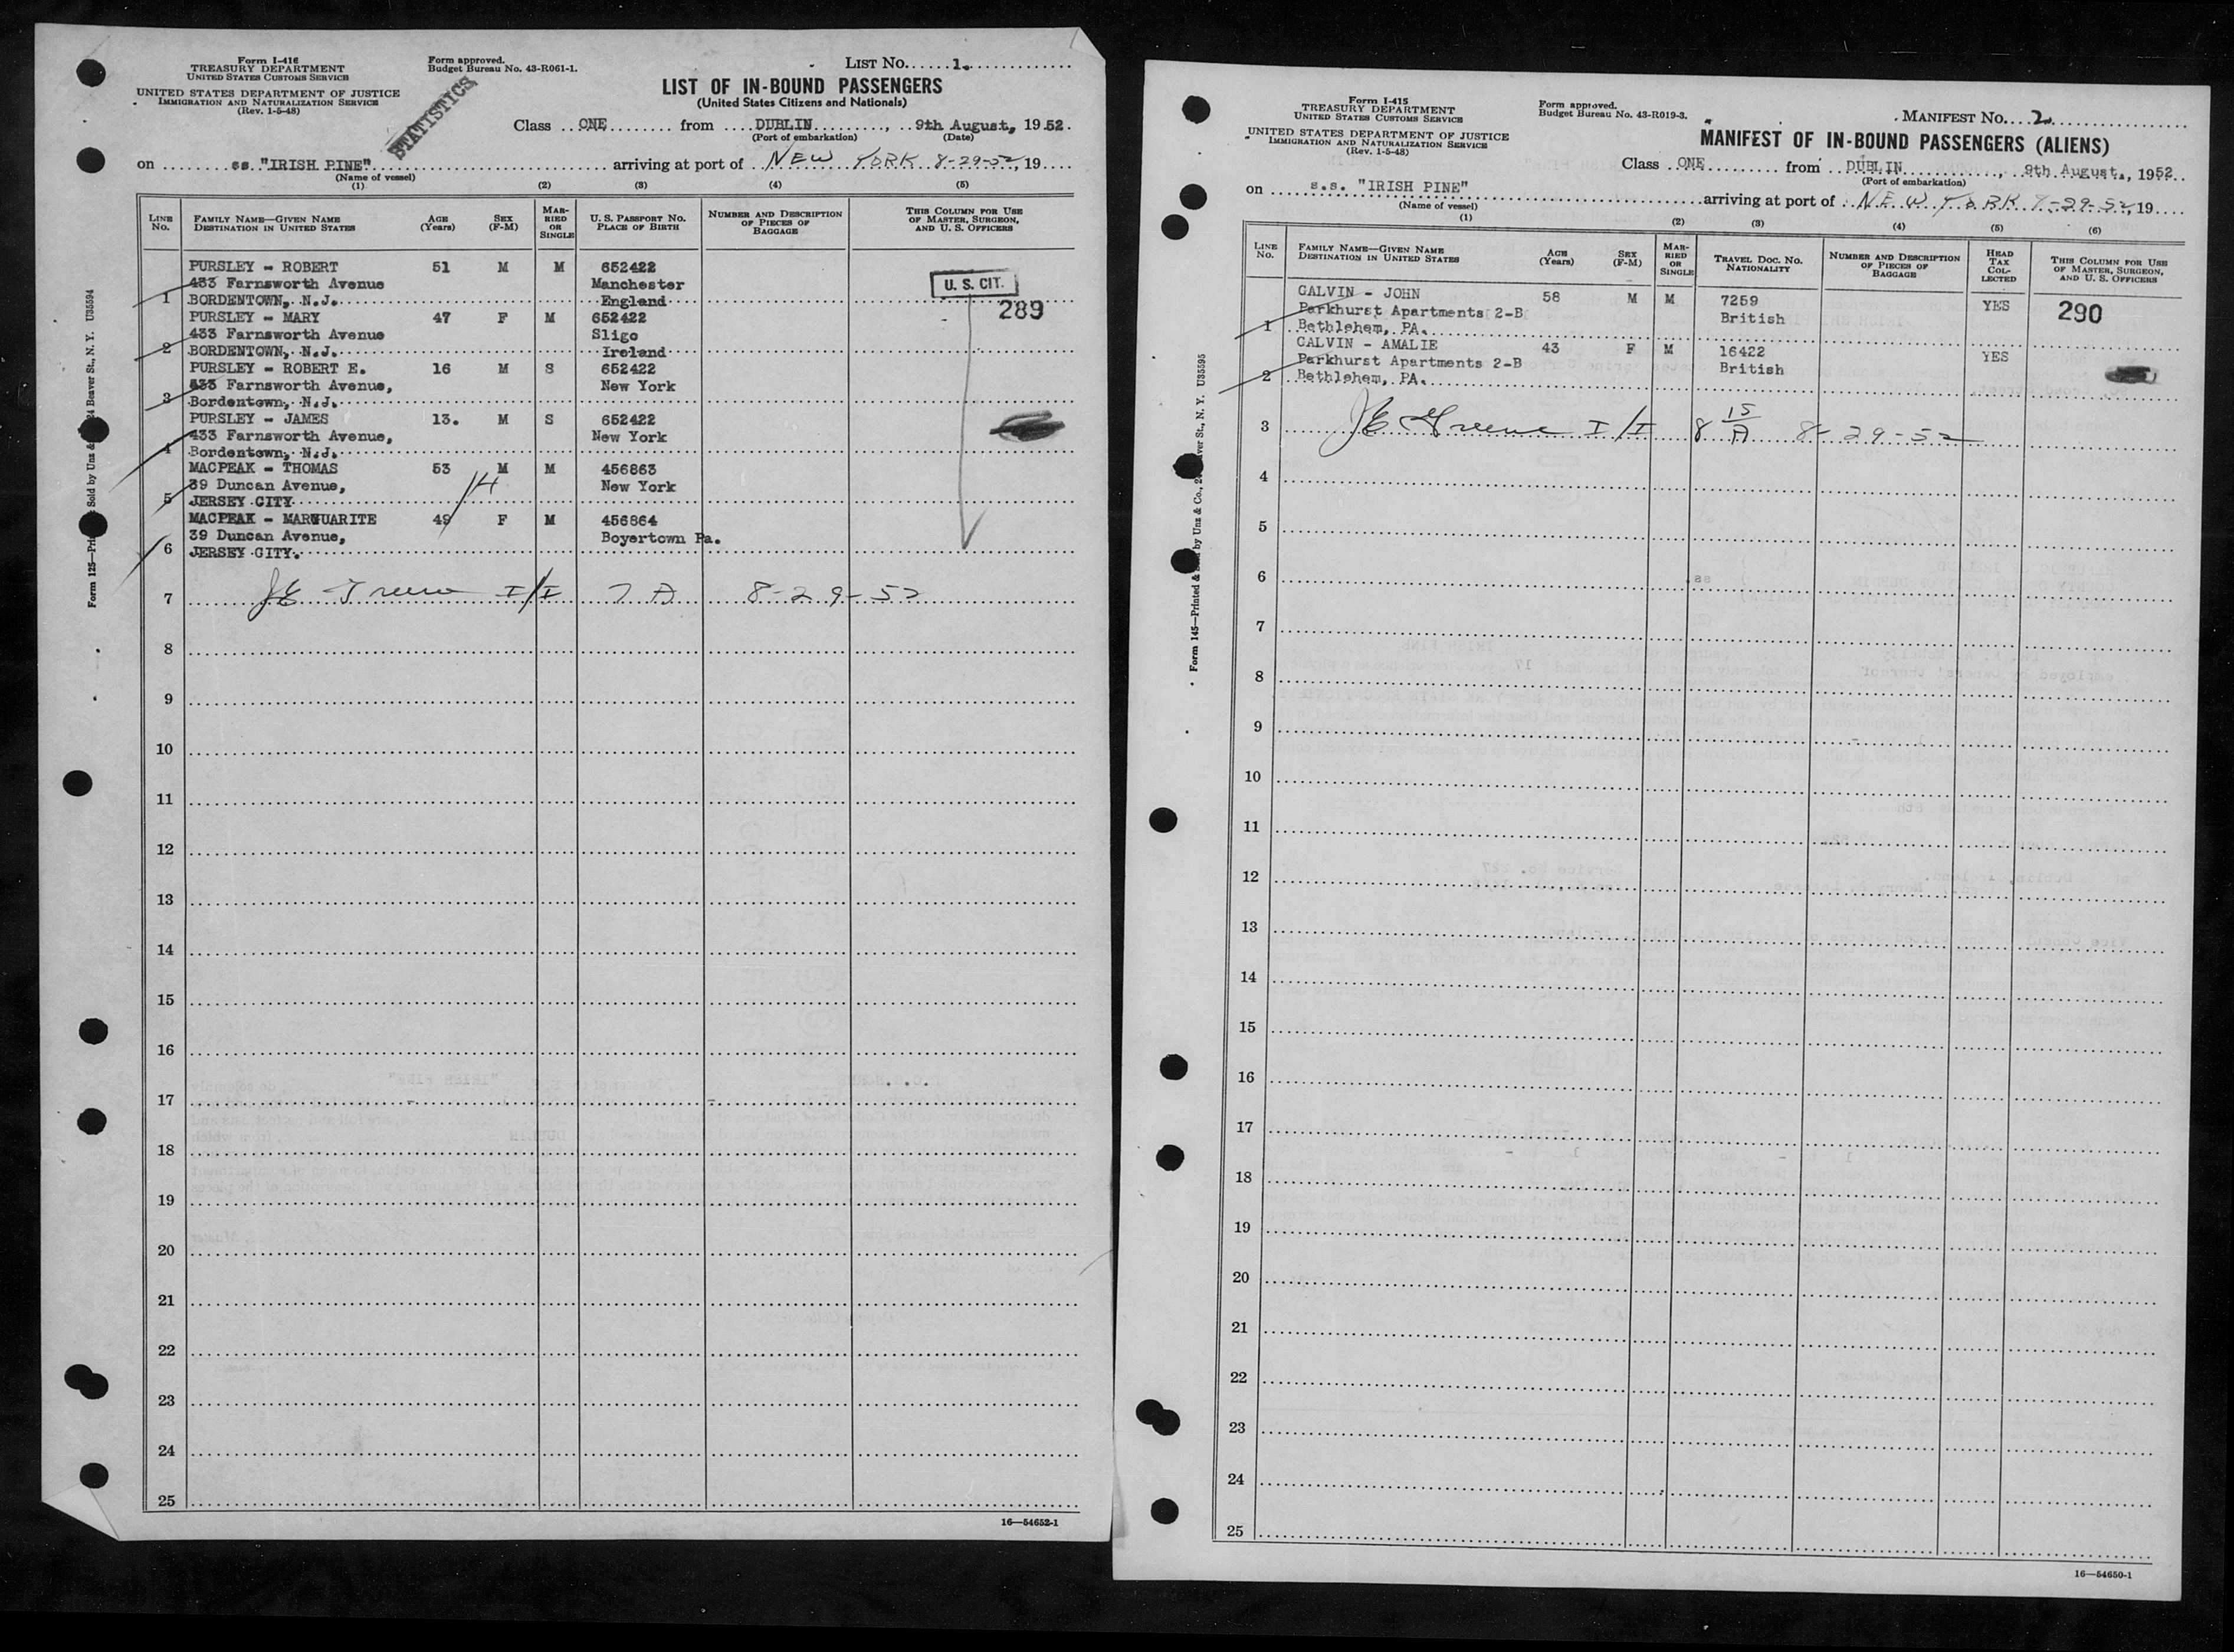 Form I-416
TREASURY DEPARTMENT
UNITED STATES CUSTOMS SERVICE
UNITED STATES DEPARTMENT OF JUSTICE
IMMIGRATION AND NATURALIZATION SERVICE
(Rev. 1-5-48)
Form approved.
Budget Bureau No. 43-R061-1.
STATISTICS
LIST No. 1.
LIST OF IN-BOUND PASSENGERS
(United States Citizens and Nationals)
Class ONE from DUBLIN, 9th August, 1952.
(Port of embarkation) (Date)
on ss. "IRISH PINE" arriving at port of NEW YORK 8-29-52, 19
(Name of vessel)
(1) (2) (3) (4) (5)
LINE No. FAMILY NAME—GIVEN NAME DESTINATION IN UNITED STATES AGE (Years) SEX (F-M) MARRIED OR SINGLE U. S. PASSPORT No. PLACE OF BIRTH NUMBER AND DESCRIPTION OF PIECES OF BAGGAGE THIS COLUMN FOR USE OF MASTER, SURGEON, AND U. S. OFFICERS
PURSLEY - ROBERT 51 M M 652422
433 Farnsworth Avenue Manchester U. S. CIT.
1 BORDENTOWN, N.J. England 289
PURSLEY - MARY 47 F M 652422
433 Farnsworth Avenue Sligo
2 BORDENTOWN, N.J. Ireland
PURSLEY - ROBERT E. 16 M S 652422
433 Farnsworth Avenue, New York
3 Bordentown, N.J.
PURSLEY - JAMES 13. M S 652422
433 Farnsworth Avenue, New York
4 Bordentown, N.J.
MACPEAK - THOMAS 53 M M 456863
39 Duncan Avenue, New York
5 JERSEY CITY
MACPEAK - MARGUARITE 49 F M 456864
39 Duncan Avenue, Boyertown Pa.
6 JERSEY CITY.
7 I/I 7 A 8-29-52
8
9
10
11
12
13
14
15
16
17
18
19
20
21
22
23
24
25
16—54652-1
Form I-415
TREASURY DEPARTMENT
UNITED STATES CUSTOMS SERVICE
UNITED STATES DEPARTMENT OF JUSTICE
IMMIGRATION AND NATURALIZATION SERVICE
(Rev. 1-5-48)
Form approved.
Budget Bureau No. 43-R019-3.
MANIFEST No. 2.
MANIFEST OF IN-BOUND PASSENGERS (ALIENS)
Class ONE from DUBLIN, 9th August., 1952
(Port of embarkation)
on s.s. "IRISH PINE" arriving at port of NEW YORK 8-29-52, 19
(Name of vessel)
(1) (2) (3) (4) (5) (6)
LINE No. FAMILY NAME—GIVEN NAME DESTINATION IN UNITED STATES AGE (Years) SEX (F-M) MARRIED OR SINGLE TRAVEL DOC. No. NATIONALITY NUMBER AND DESCRIPTION OF PIECES OF BAGGAGE HEAD TAX COLLECTED THIS COLUMN FOR USE OF MASTER, SURGEON, AND U. S. OFFICERS
CALVIN - JOHN 58 M M 7259 YES 290
Parkhurst Apartments 2-B British
1 Bethlehem, PA.
CALVIN - AMALIE 43 F M 16422 YES
Parkhurst Apartments 2-B British
2 Bethlehem, PA.
3 J E Greene I/I 8 15/A 8-29-52
4
5
6
7
8
9
10
11
12
13
14
15
16
17
18
19
20
21
22
23
24
25
16—54650-1